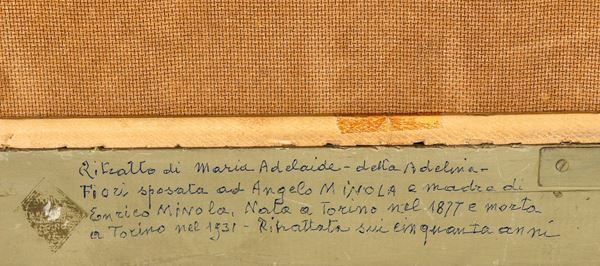 Ritratto di Maria Adelaide - detta Adelina -
Fiori sposata ad Angelo MINOLA e madre di
Enrico MINOLA. Nata a Torino nel 1877 e morta
a Torino nel 1931 - Ritrattata sui cinquanta anni